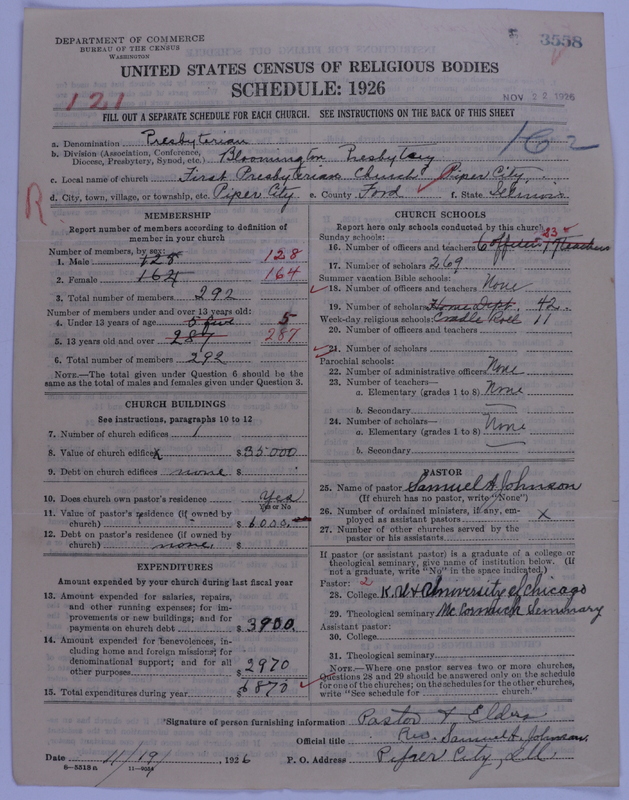 DEPARTMENT OF COMMERCE
BUREAU OF THE CENSUS
WASHINGTON
3558
UNITED STATES CENSUS OF RELIGIOUS BODIES
SCHEDULE: 1926
121
NOV 22 1926
FILL OUT A SEPARATE SCHEDULE FOR EACH CHURCH. SEE INSTRUCTIONS ON THE BACK OF THIS SHEET
a. Denomination Presbyterian
b. Division (Association, Conference, Diocese, Presbytery, Synod, etc.) Bloomington Presbytery
c. Local name of church First Presbyterian Church Piper City
R
d. City, town, village, or township, etc. Piper City e. County Ford f. State Illinois
MEMBERSHIP
Report number of members according to definition of
member in your church
Number of members, by sex:
1. Male 128 128
2. Female 164 164
3. Total number of members 292
Number of members under and over 13 years old:
4. Under 13 years of age 5 five 5
5. 13 years old and over 287 287
6. Total number of members 292
NOTE.—The total given under Question 6 should be
same as the total of males and females given under Question 3.
CHURCH BUILDINGS
See instructions, paragraphs 10 to 12
7. Number of church edifices 1
8. Value of church edifices $35000
9. Debt on church edifices none $
10. Does church own pastor's residence Yes
Yes or No
11. Value of pastor's residence (if owned by
church) $6000.
12. Debt on pastor's residence (if owned by
church) none $
EXPENDITURES
Amount expended by your church during last fiscal year
13. Amount expended for salaries, repairs,
and other running expenses; for im-
provements or new buildings; and for
payments on church debt $3900.
14. Amount expended for benevolences, in-
cluding home and foreign missions; for
denominational support; and for all
other purposes $2970
15. Total expenditures during year $6870
CHURCH SCHOOLS
Report here only schools conducted by this church
Sunday schools: 23
16. Number of officers and teachers 6 officers 17 teachers
17. Number of scholars 269
Summer vacation Bible schools:
18. Number of officers and teachers None
19. Number of scholars Home Dept. 42.
Week-day religious schools: Cradle Roll 11
20. Number of officers and teachers
21. Number of scholars
Parochial schools:
22. Number of administrative officers None
23. Number of teachers—
a. Elementary (grades 1 to 8) None
b. Secondary
24. Number of scholars—
a. Elementary (grades 1 to 8) None
b. Secondary
PASTOR
25. Name of pastor Samuel A. Johnson
(If church has no pastor, write "None")
26. Number of ordained ministers, if any, em-
ployed as assistant pastors x
27. Number of other churches served by the
pastor or his assistants
If pastor (or assistant pastor) is a graduate of a college or
theological seminary, give name of institution below. (If
not a graduate, write "No" in the space indicated.)
Pastor: 2
28. College K.U. & University of Chicago
29. Theological seminary McCormick Seminary
Assistant pastor:
30. College
31. Theological seminary
NOTE.—Where one pastor serves two or more churches,
Questions 28 and 29 should be answered only on the schedule
for one of the churches; on the schedules for the other churches,
write "See schedule for church."
Signature of person furnishing information Pastor & Elders
Official title Rev. Samuel A. Johnson.
Date 11/19/, 1926 P. O. Address Piper City, Ill.